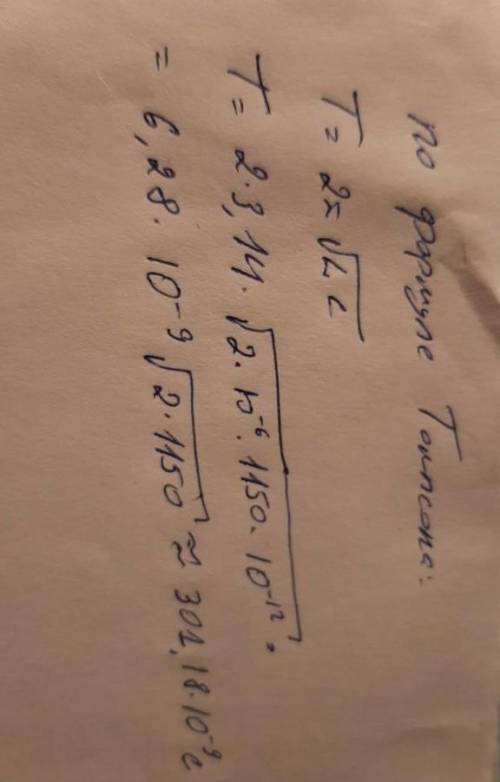 По формуле Томпсона:
T = 2π√LC
T = 2·3,14·√2·10⁻⁶·1150·10⁻¹² =
= 6,28·10⁻⁹√2·1150 ≈ 301,18·10⁻⁹ с